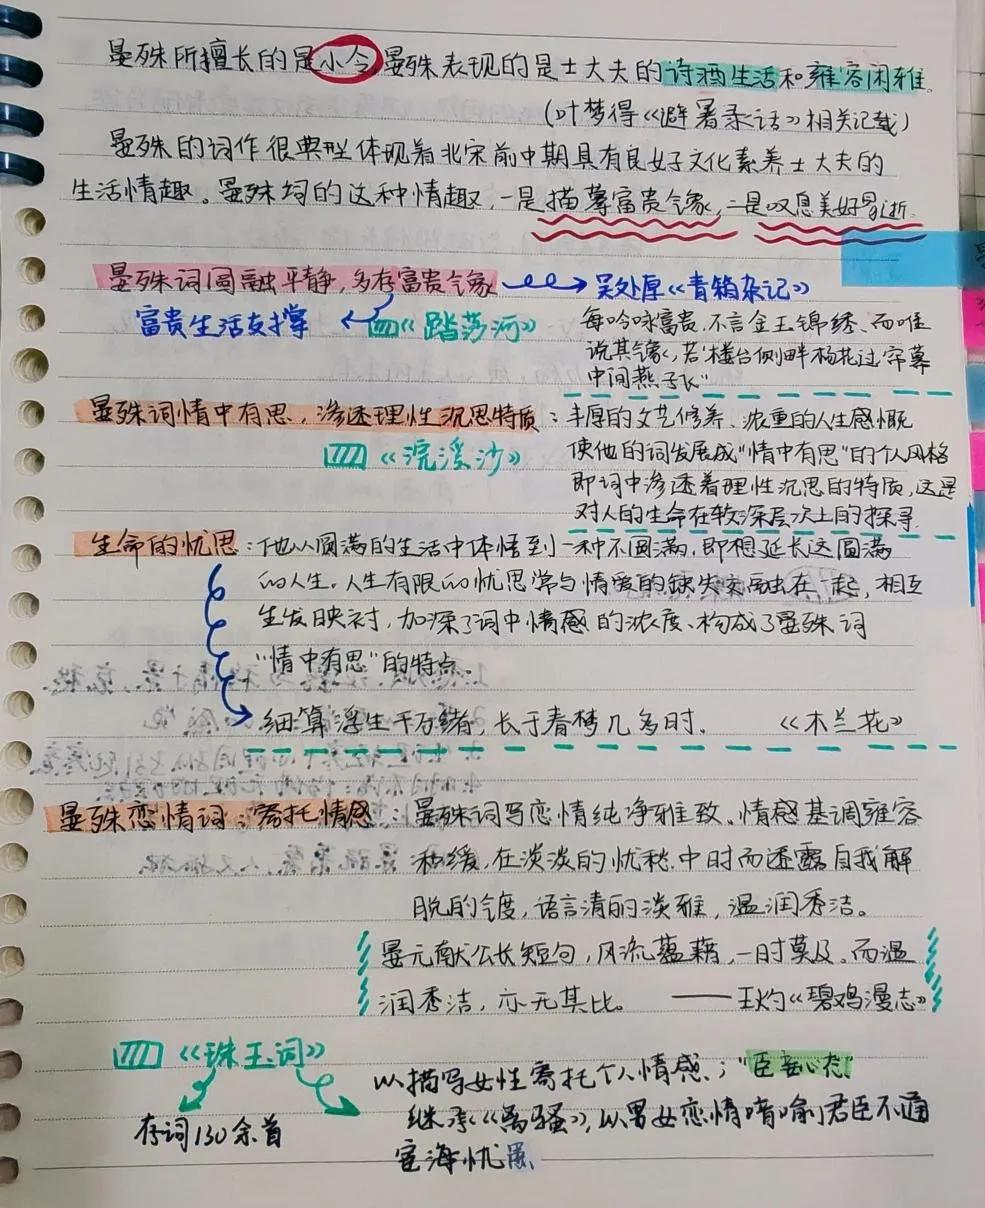 晏殊所擅长的是小令,晏殊表现的是士大夫的诗酒生活和雍容闲雅。
(叶梦得《避暑录话》相关记载)
晏殊的词作很典型体现着北宋前中期具有良好文化素养士大夫的
生活情趣。晏殊均的这种情趣,一是描摹富贵气象,二是叹息美好易逝.
晏殊词圆融平静,多存富贵气象
吴处厚《青箱杂记》
富贵生活支撑
《踏莎河》
每吟咏富贵,不言金玉锦绣、而唯
说其气象,若“楼台侧畔杨花过帘幕
中间燕子飞”
晏殊词情中有思,渗透理性沉思特质:
丰厚的文艺修养、浓重的人生感慨
《浣溪沙》
使他的词发展成“情中有思”的个人风格
即词中渗透着理性沉思的特质,这是
对人的生命在较深层次上的探寻.
生命的忧思:他从圆满的生活中体悟到一种不圆满,即想延长这圆满
的人生.人生有限的忧思常与情爱的缺失交融在一起,相互
生发映衬,加深了词中情感的浓度、构成了晏殊词
“情中有思”的特点.
细算浮生千万绪,长于春梦几多时. 《木兰花》
晏殊恋情词:寄托情感:晏殊词写恋情纯净雅致、情感基调雍容
和缓,在淡淡的忧愁中时而透露自我解
脱的气度,语言清丽淡雅,温润秀洁。
晏元献公长短句,风流蕴藉,一时莫及、而温
润秀洁,亦无其比。 ——王灼《碧鸡漫志》
《珠玉词》
存词130余首
以描写女性寄托个人情感;“臣妾心态”
继承《离骚》,以男女恋情喻君臣不遇
宦海忧